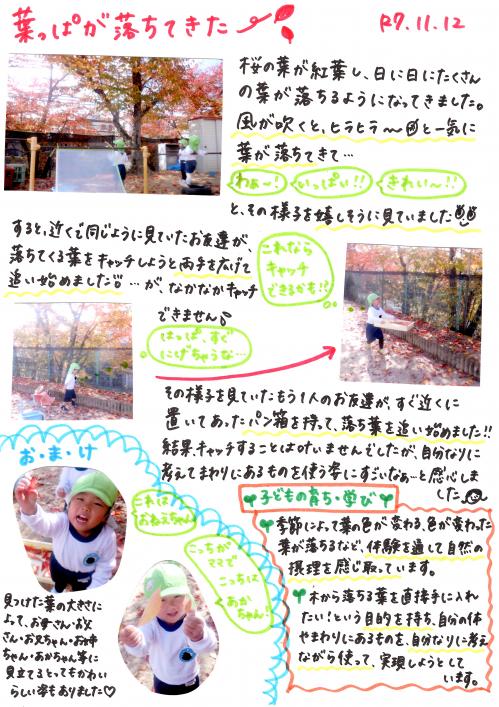 葉っぱが落ちてきた
R7.11.12
桜の葉が紅葉し、日に日にたくさん
の葉が落ちるようになってきました。
風が吹くと、ヒラヒラ〜と一気に
葉が落ちてきて…
わぁ〜!
いっぱい!!
きれい〜!!
と、その様子を嬉しそうに見ていました
すると、近くで同じように見ていたお友達が、
落ちてくる葉をキャッチしようと両手を広げて
追い始めました!! …が、なかなかキャッチ
できません♪
これなら
キャッチ
できるかも!!
はっぱ、すぐ
にげちゃうな…
その様子を見ていたもう1人のお友達が、すぐ近くに
置いてあったパン箱を持って、落ち葉を追い始めました!!
結果、キャッチすることはできませんでしたが、自分なりに
考えてまわりにあるものを使う事にすごいなぁ…と感心しま
した
お・ま・け
これは
おねえちゃん!
こっちが
ママで
こっちは
あか
ちゃん!
見つけた葉の大きさに
よって、お母さん・お父
さん・お兄ちゃん・お姉
ちゃん・あかちゃん等に
見立てるとってもかわい
らしい姿もありました♡
子どもの育ち・学び
季節によって葉の色が変わる、色が変わった
葉が落ちるなど、体験を通して自然の
摂理を感じ取っています。
木から落ちる葉を直接手に入れ
たい!という目的を持ち、自分の体
やまわりにあるものを、自分なりに考え
ながら使って、実現しようとして
います。